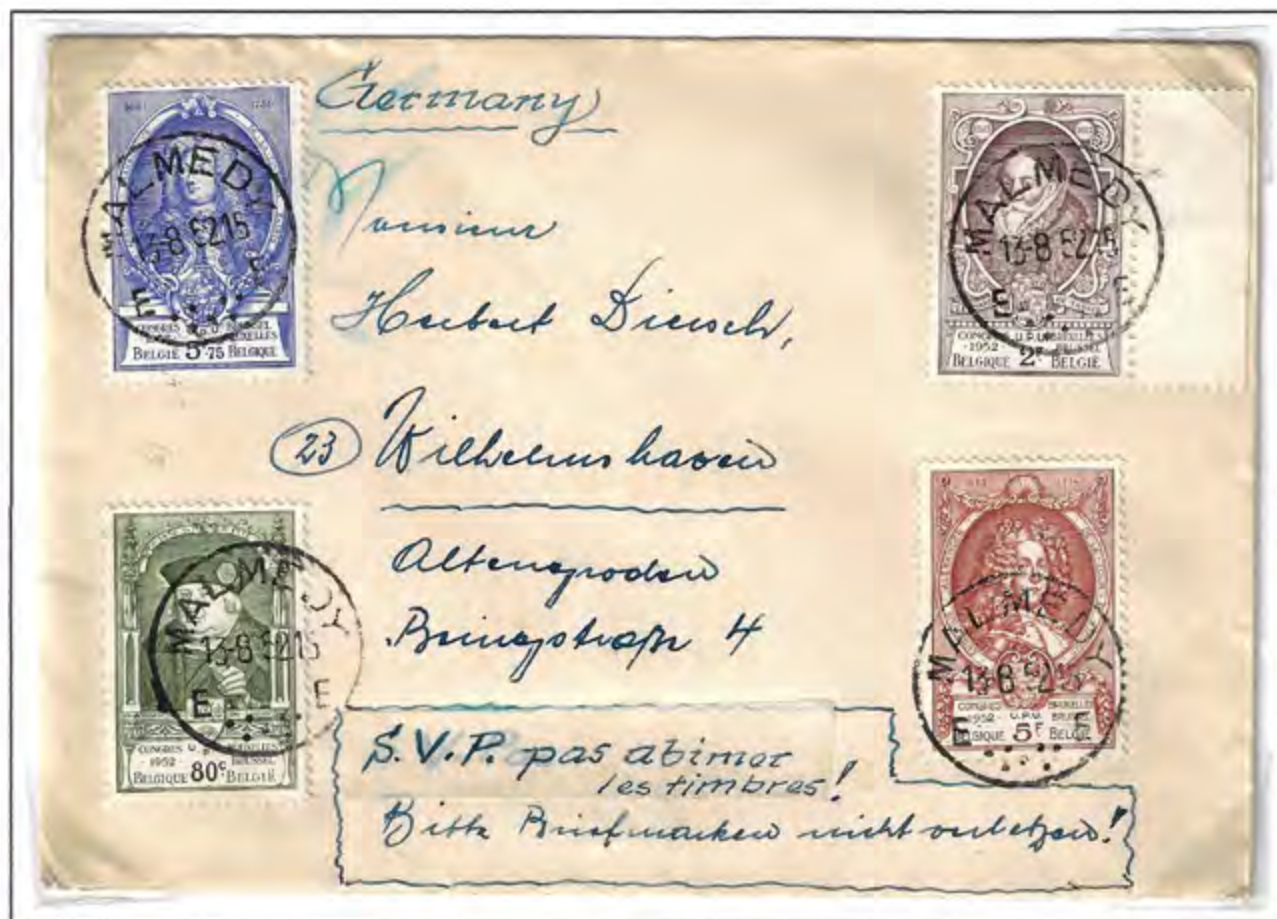 Germany
Monsieur
Herbert Diersch,
23 Wilhelmshaven
Altengroden
4
S.V.P. pas abimer
les timbres!
Bitte Briefmarken nicht verletzen!
MALMEDY
13-8 52 15
E E
CONGRES U.P.U. BRUSSEL
BRUXELLES
BELGIË 5F.75 BELGIQUE
MALMEDY
13-8 52 15
E E
CONGRES U.P.U. BRUXELLES
-1952 BRUSSEL
BELGIQUE 2F BELGIË
MALMEDY
13-8 52 15
E E
CONGRES U.P.U. BRUXELLES
-1952 BRUSSEL
BELGIQUE 80c BELGIË
MALMEDY
13-8 52 15
E E
CONGRES U.P.U. BRUXELLES
-1952 BRUSSEL
BELGIQUE 5F BELGIË